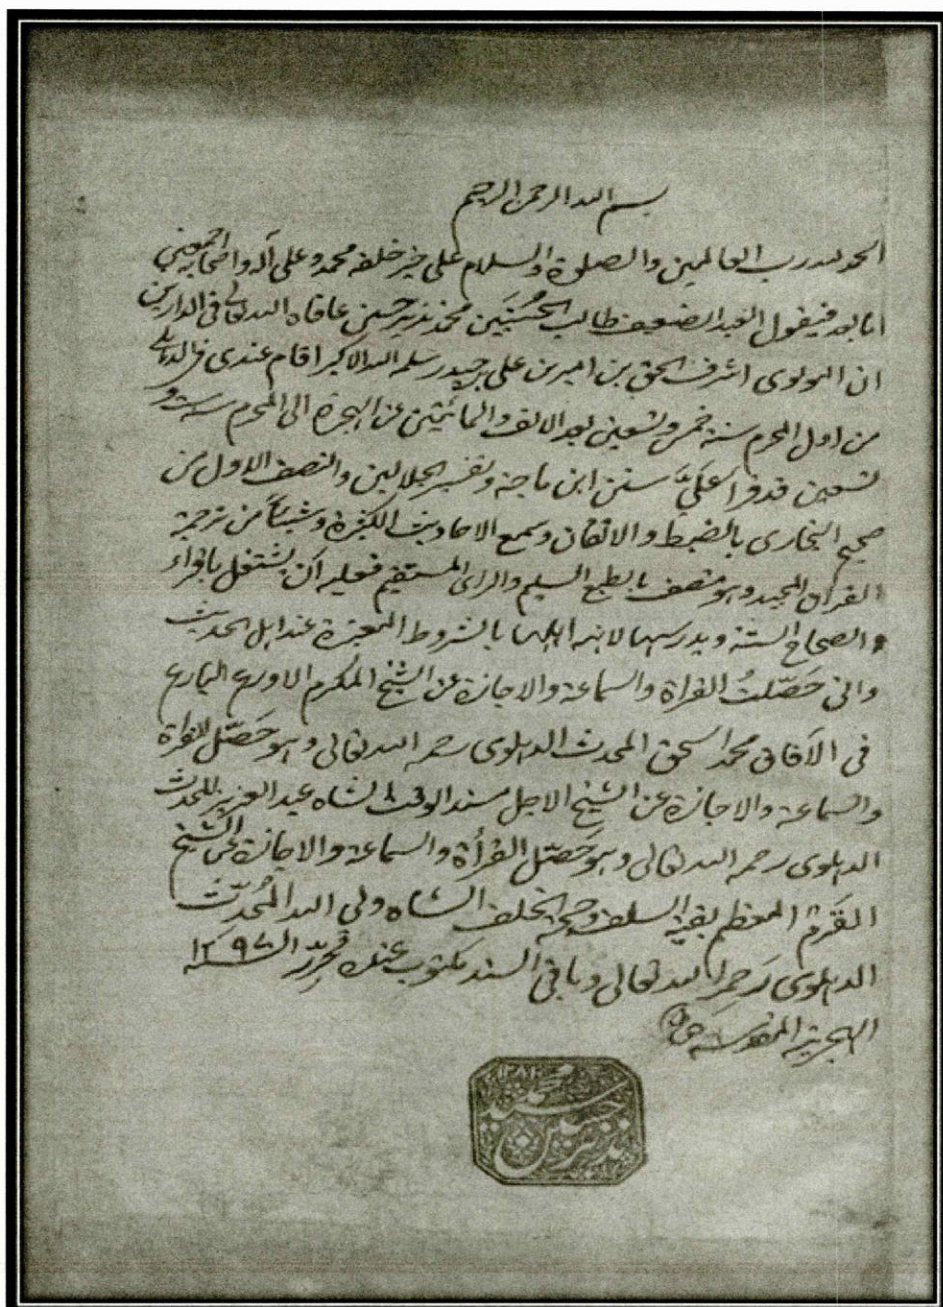 بسم الله الرحمن الرحيم
الحمد لله رب العالمين والصلوة والسلام على خير خلقه محمد وعلى آله واصحابه اجمعين
اما بعد فيقول العبد الضعيف طالب الحُسنَيَين محمد نذير حسين عافاه الله تعالى فى الدارين
ان المولوى اشرف الحق بن امير بن على حيدر سلمه الله الاكبر اقام عندى فى الدهلى
من اول المحرم سنة خمس وتسعين بعد الالف والمائتين من الهجرة الى المحرم سنة ست و
تسعين قد قرأ عَلَيَّ سنن ابن ماجه وتفسير الجلالين والنصف الاول من
صحيح البخارى بالضبط والاتقان وسمع الاحاديث الكثيرة وشيئاً من ترجمة
القرآن المجيد وهو متصف بالطبع السليم والراى المستقيم فعليه ان يشتغل باقراء
الصحاح الستة ويدرسها لانه اهلها بالشروط المعتبرة عند اهل الحديث
وانى حَصّلتُ القراة والسماعة والاجازة عن الشيخ المكرم الاورع البارع
فى الآفاق محمد اسحق المحدث الدهلوى رحمه الله تعالى وهو حَصّل القراة
والسماعة والاجازة عن الشيخ الاجل مسند الوقت الشاه عبد العزيز المحدث
الدهلوى رحمه الله تعالى وهو حَصّل القرأة والسماعة والاجازة عن الشيخ
القَرم المعظم بقية السلف وحجة الخلف الشاه ولى الله المُحدّث
الدهلوى رحمه الله تعالى وباقى السند مكتوب عنده حُرّر السنة ١٢٩٦
الهجرية المقدسة
١٢٨١
سيد محمد نذير حسين